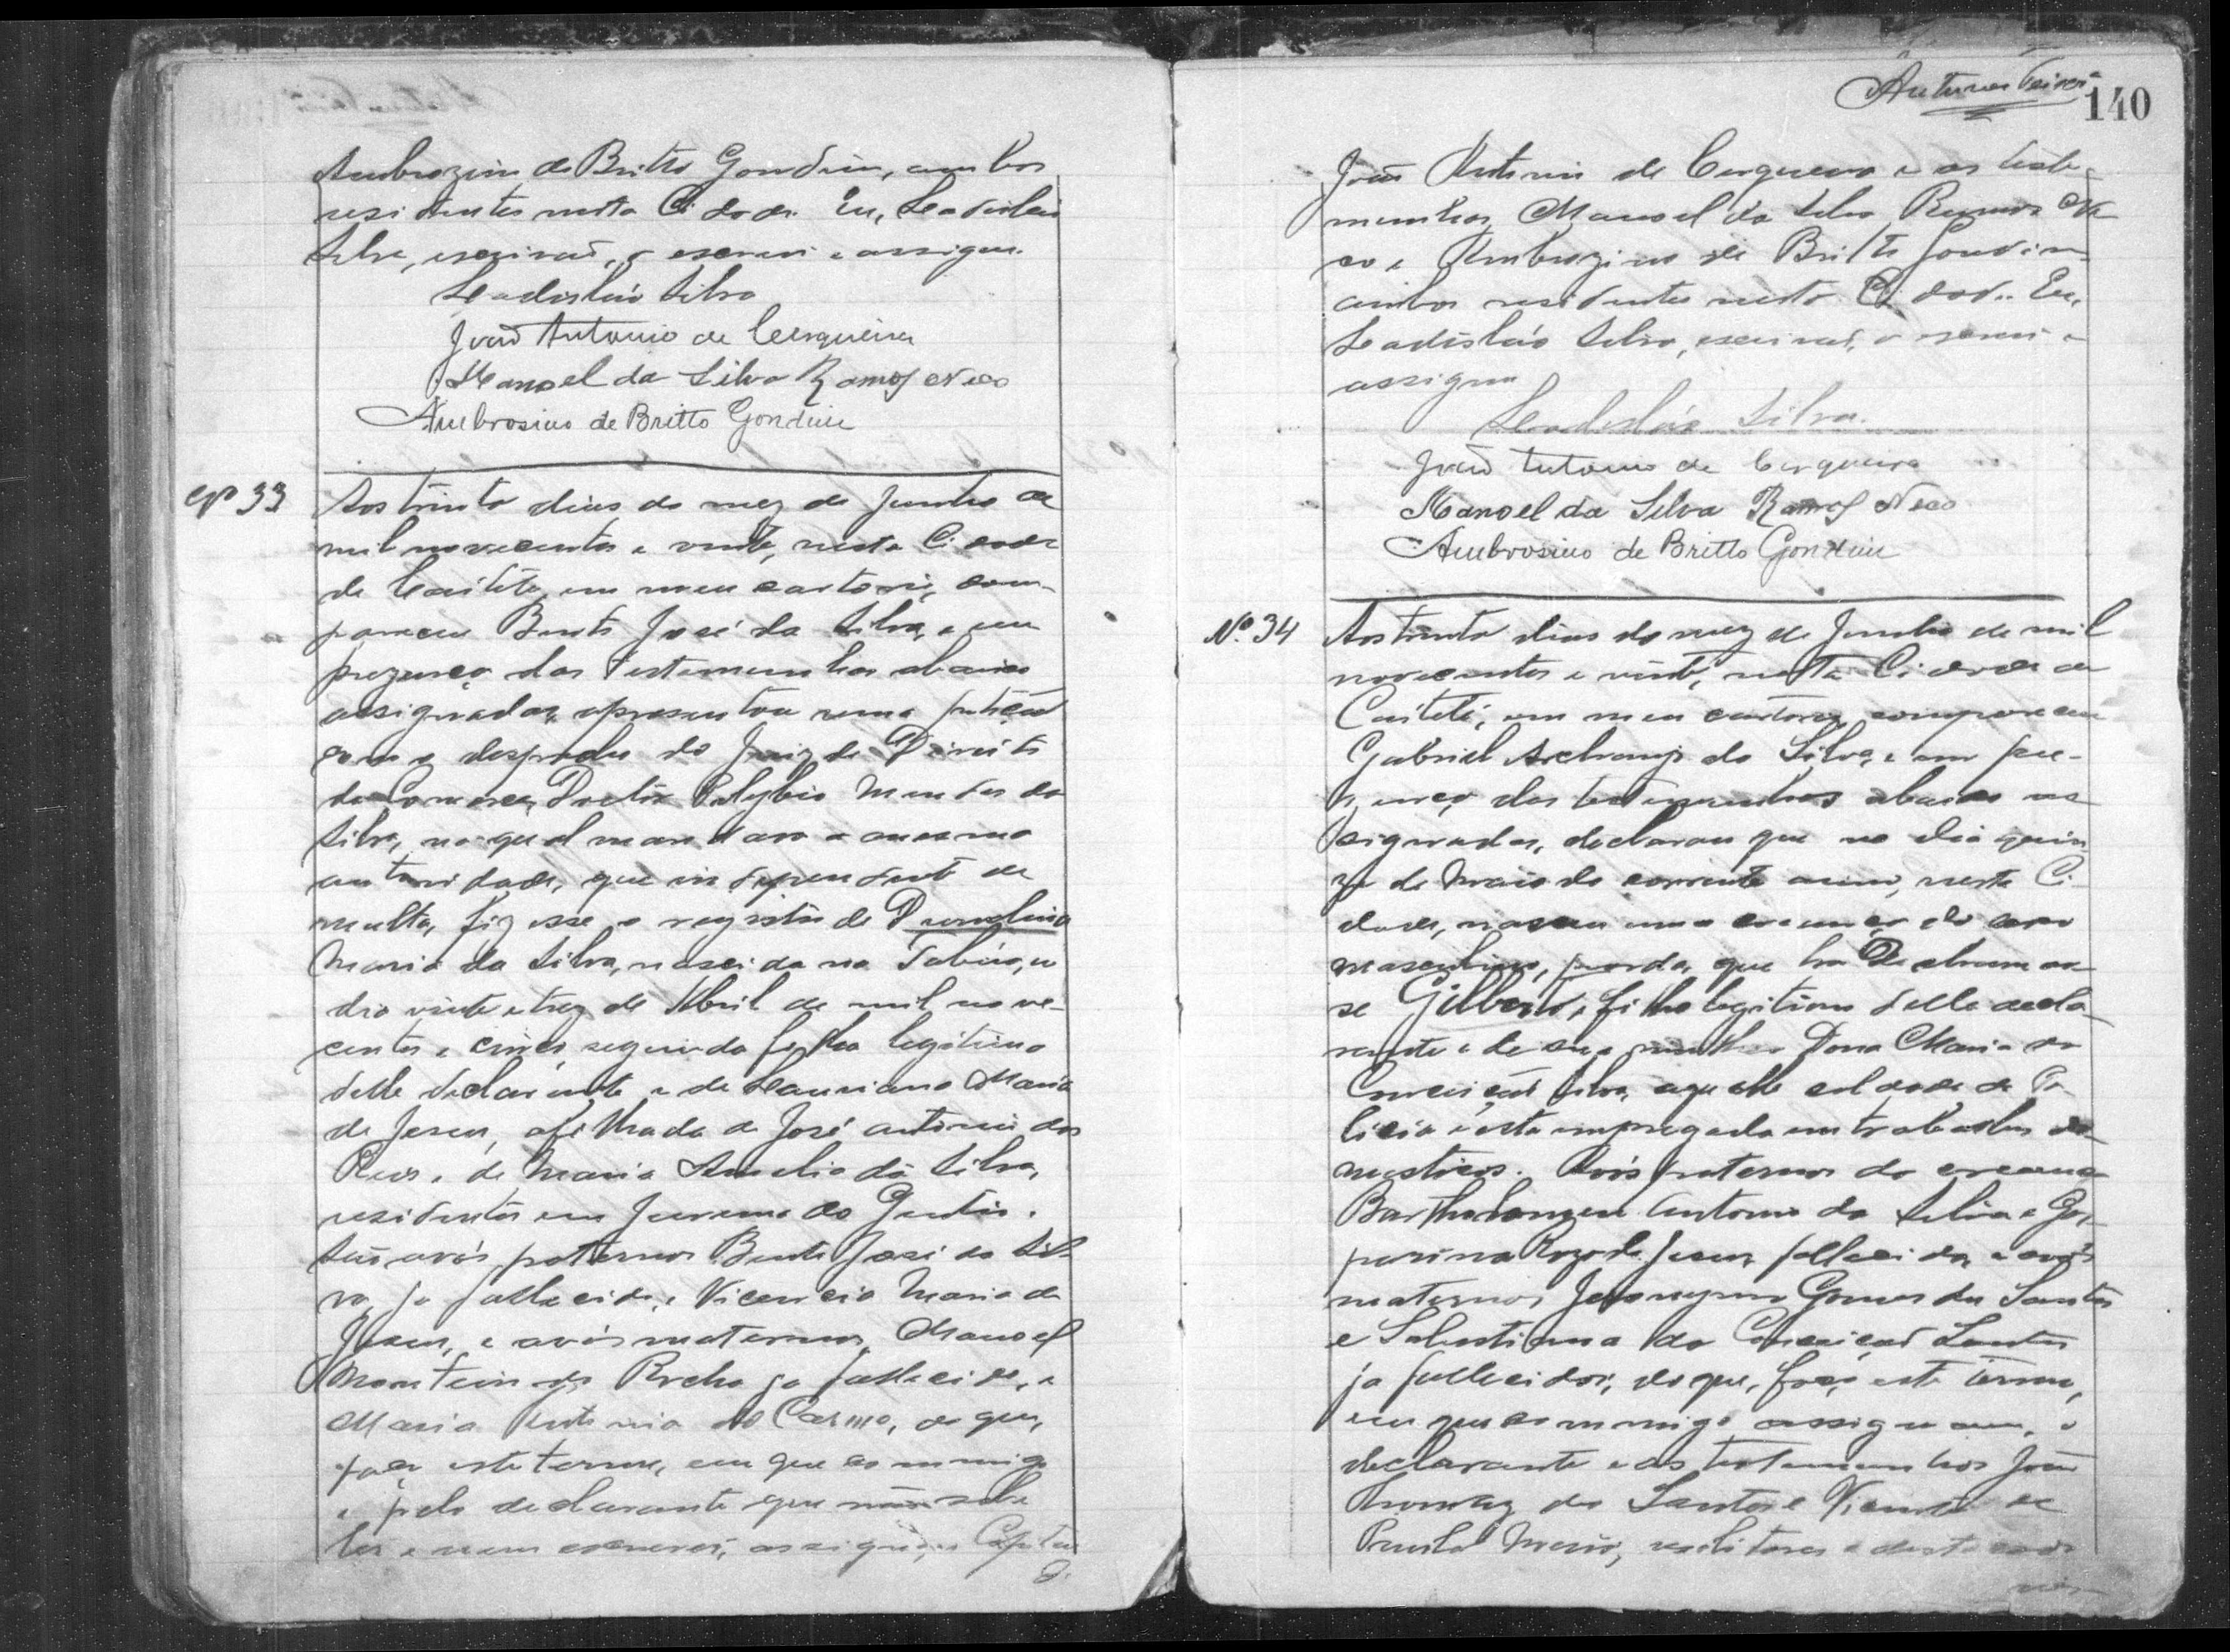 Ambrozino de Britto Gondim, ambos
residentes nesta Cidade. Eu, Leadislau
Silva, escrivaõ, o escrevi e assigno.
Leadisláo Silva
Joaõ Antonio de Cerqueira
Manoel da Silva Ramos Neco
Ambrosino de Britto Gondim
Nº 33
Aos trinta dias do mez de Junho de
mil novecentos e vinte, nesta Cidade
de Caiteté, em meu cartorio, com-
pareceu Bento José da Silva, e em
prezença das testemunhas abaixo
assignadas, apresentou uma petiçaõ
com o despacho do Juiz de Direito
da Comarca, Doctor Polybio Mendes da
Silva, no qual mandava a mesma
autoridade, que independente de
multa, fizesse o registro de
Maria da Silva, nascida na o
dia vinte e trez de Abril de mil nove-
centos e cinco, segunda filha legitima
delle declarante e de Lauriana Maria
de Jesus, afilhada de José Antonio dos
Reis, e de Maria Amelia da Silva,
residentes em Jurema do
Saõ avós paternos Bento José da Sil-
va, ja fallecido, e Vicencia Maria de
Jesus, e avós maternos, Manoel
Monteiro da Rocha ja fallecido, e
Maria Antonia do Carmo, do que,
faço este termo, em que commigo
e pelo declarante que naõ sabe
ler e nem escrever, assigna, o Capitaõ
Antunes Teixeira
140
Joaõ Antonio de Cerqueira e as teste-
munhas, Manoel da Silva Ramos Ne-
co e Ambrozino de Britto Gondim
ambos residentes nesta Cidade. Eu,
Leadisláo Silva, escrivaõ, o escrevi e
assigno
Leadisláo Silva.
Joaõ Antonio de Cerqueira
Manoel da Silva Ramos Neco
Ambrosino de Britto Gondim
Nº. 34
Aos trinta dias do mez de Junho de mil
novecentos e vinte, nesta Cidade de
Caiteté, em meu cartorio, compareceu
Gabriel Archanjo da Silva, e em pre-
zença das testemunhas abaixo as-
signadas, declarou que no dia quin
ze de Maio do corrente anno, nesta Ci-
dade, nasceu uma creança do sexo
masculino, parda, que ha de chamar
se Gilberto, filho legitimo delle decla-
rante e de sua mulher Dona Maria da
Conceiçaõ Silva, aquelle soldado de Po-
licia e esta empregada em trabalhos do-
mesticos. Avós paternos da creança
Bartholomeu Antonio da Silva e Gas-
parina Roza de Jesus, fallecida, e avós
maternos Jeronymo Gomes dos Santos
e Salustiana da Conceiçaõ Santos
ja fallecidos, do que, faço este termo,
em que commigo assignam, o
declarante e as testemunhas Joaõ
Thomaz dos Santos e Vicente de
Paula militares e destacados